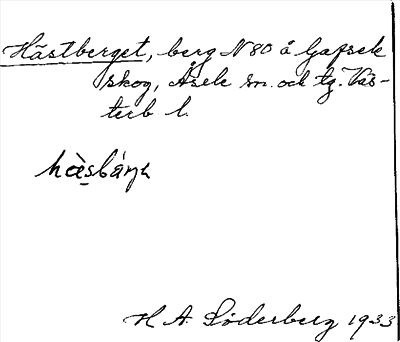 Hästberget, berg N80 å Gafsele
skog, Åsele sn. och tg. Väs-
terb l.
H A. Söderberg 1933